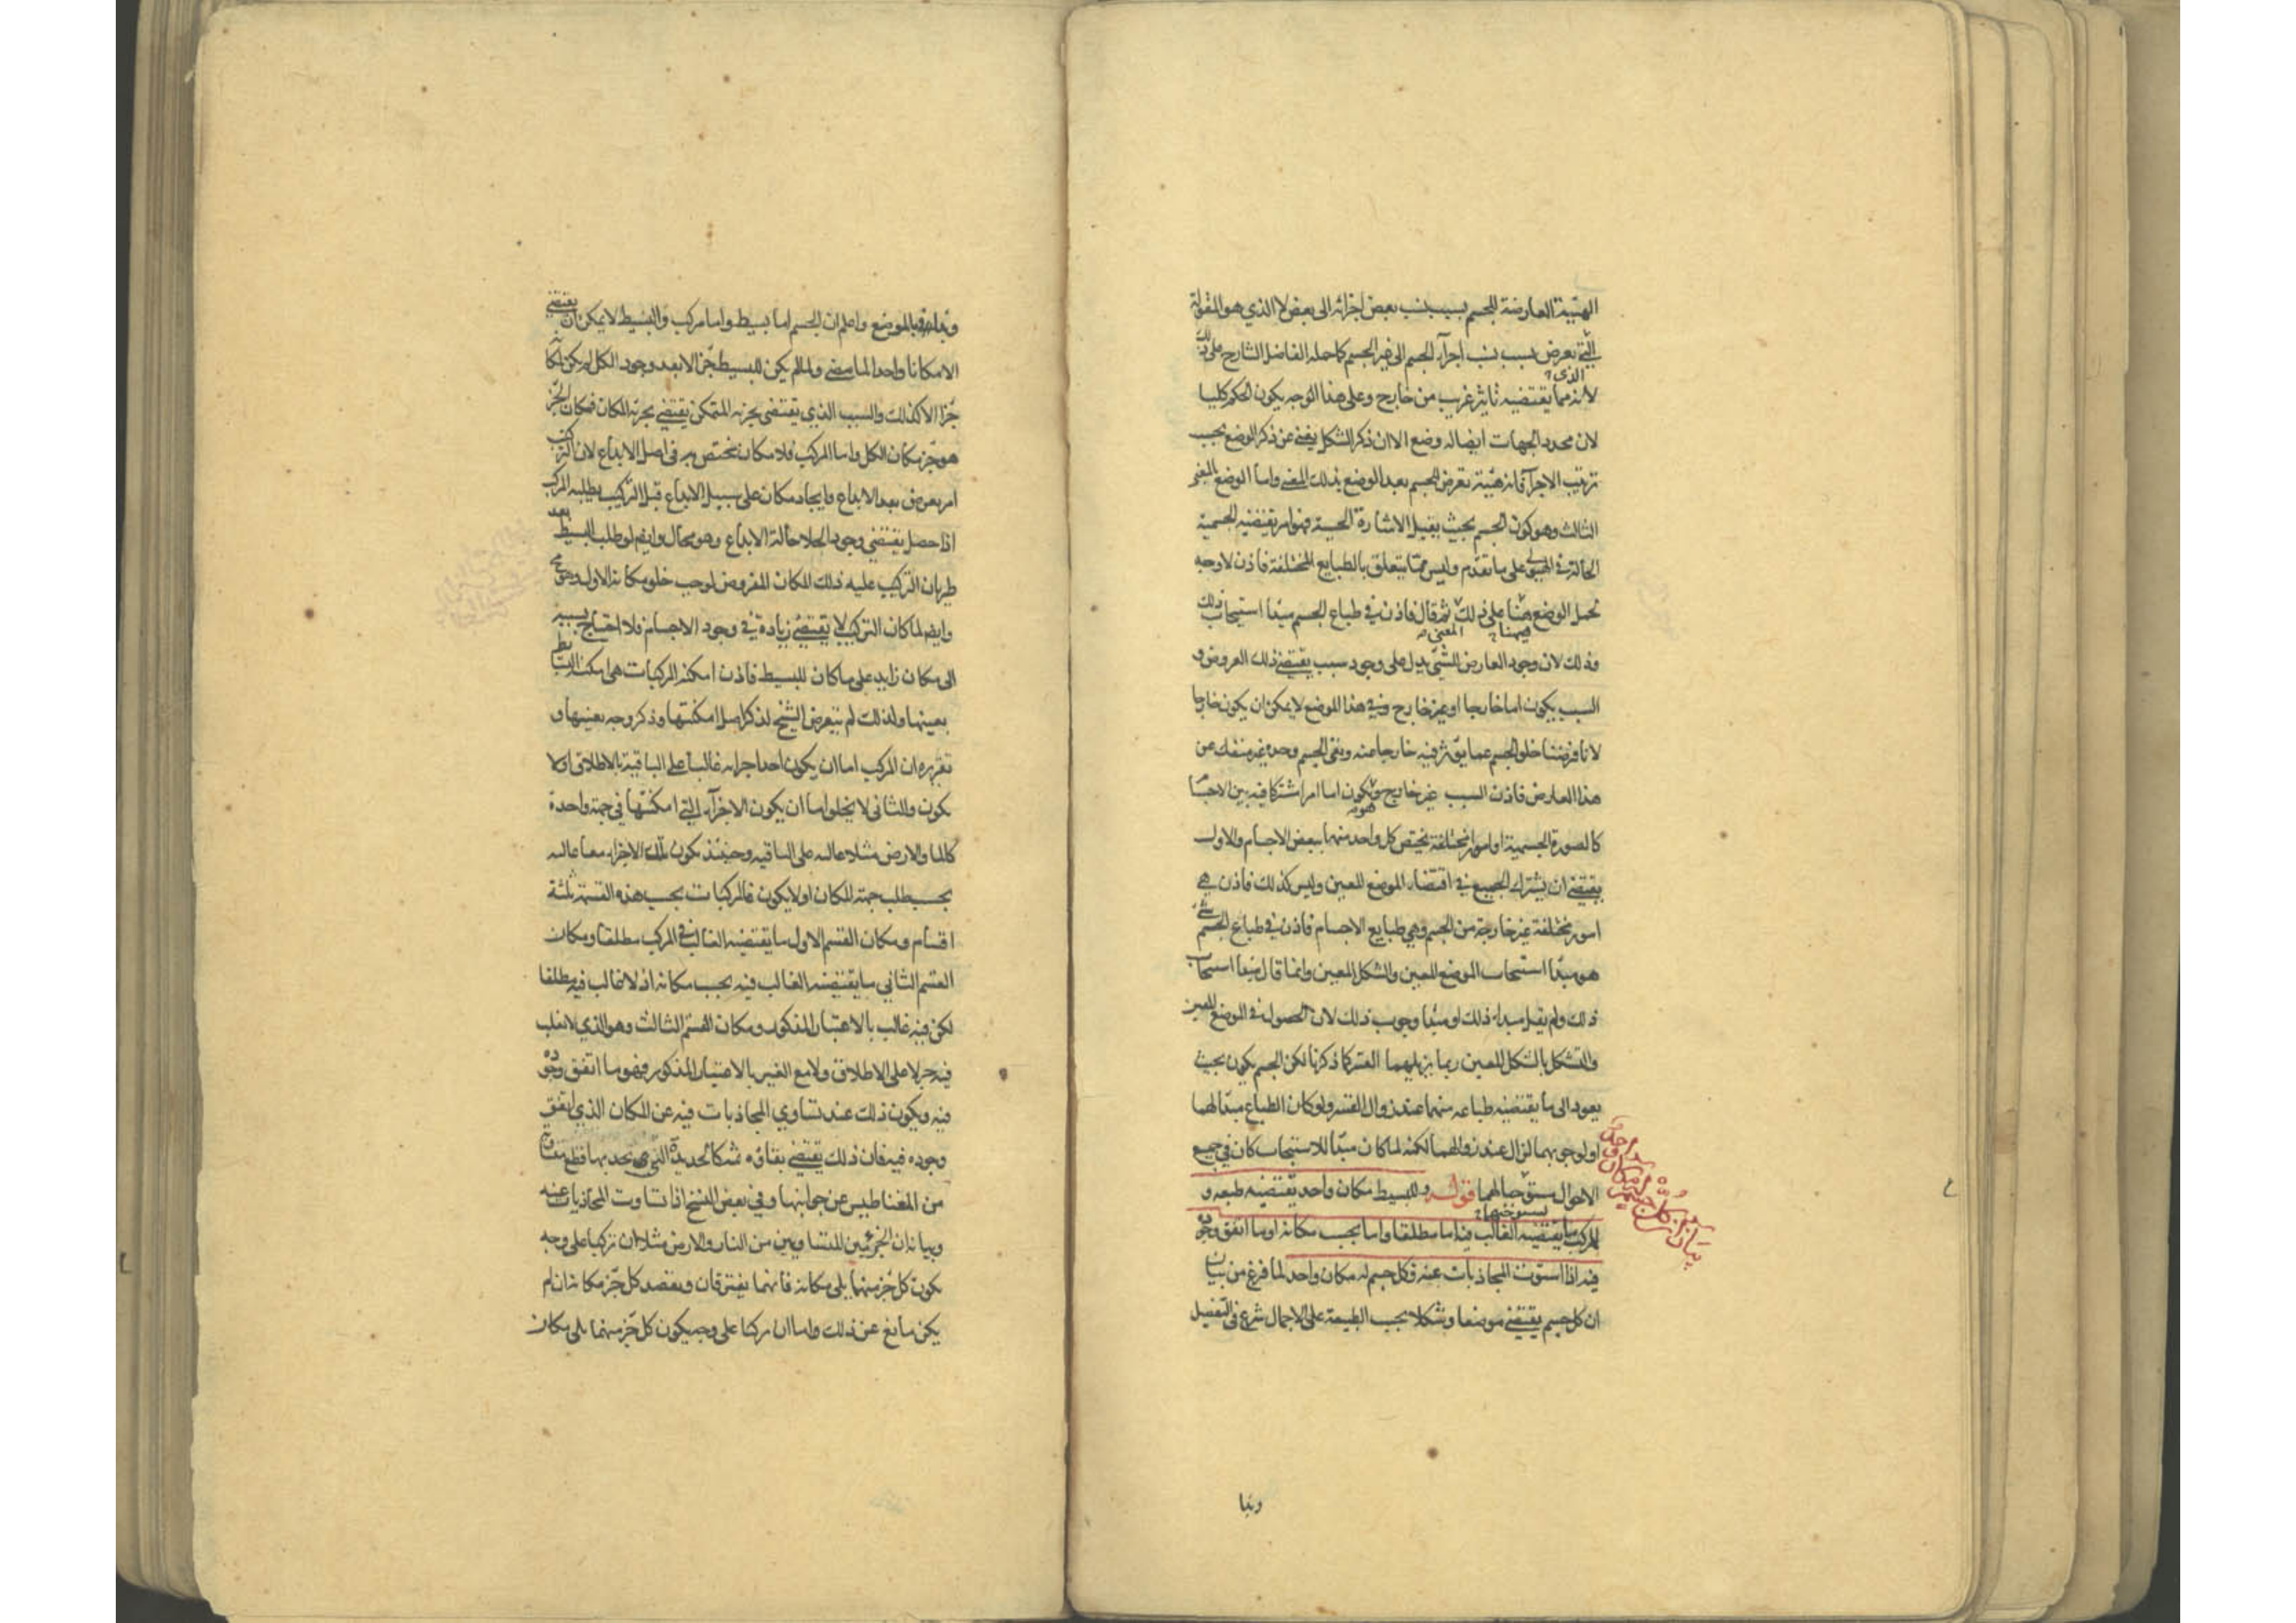 الهيئة العارضة للجسم بسبب نسب بعض اجزائه الى بعض لا الذي هو المقولة
التي تعرض بسبب نسب اجزآء الجسم الى غير الجسم كما حمله الفاضل الشارح على ذلك
لانه مما يقتضيه تاثير غريب من خارج وعلى هذا الوجه يكون الحكم كليا
الذى
لان محدد الجهات ايضا له وضع الا ان ذكر الشكل يغنى عن ذكر الوضع بحسب
ترتيب الاجزآ فانه هيئة تعرض للجسم بعد الوضع بذلك المعنى واما الوضع بالمعنى
الثالث وهو كون الجسم بحيث يقبل الاشارة الحسية فهو امر تقتضيه الجسمية
الحالة في الهيولى على ما تقدم وليس مما يتعلق بالطبايع المختلفة فاذن لا وجه
لحمل الوضع هنا على ذلك ثم قال فاذن في طباع الجسم مبدأ استيجاب ذلك
وذلك لان وجود العارض للشئ يدل على وجود سبب يقتضي ذلك العروض و
السبب يكون اما خارجا او غير خارج وفي هذا الموضع لا يمكن ان يكون خارجا
لانا فرضنا خلو الجسم عما يؤثر فيه خارجا عنه وبقى الجسم وحده غير منفك عن
هذا العارض فاذن السبب غير خارج ويكون اما امر اشتركا فيه بين الاجسام
كالصورة الجسمية او امور مختلفة يختص كل واحد منها ببعض الاجسام والاول
يقتضي ان يشترك الجميع في اقتضاء الموضع المعين وليس كذلك فاذن هي
امور مختلفة غير خارجة من الجسم وهي طبايع الاجسام فاذن في طباع الجسم شئ
هو مبدأ استيجاب الموضع المعين والشكل المعين وانما قال مبدأ استيجاب
ذلك ولم يقل مبدأ ذلك او مبدأ وجوب ذلك لان الحصول في الموضع المعين
والتشكل بالشكل المعين ربما يزيلهما القسر كما ذكرنا لكن الجسم يكون بحيث
يعود الى ما يقتضيه طباعه منهما عند زوال القسر ولو كان الطباع مبدأ لهما
او لوجوبهما لزال عند زوالهما لكنه لما كان مبدأ للاستيجاب كان في جميع
الاحوال مستوجبا لهما قوله وللبسيط مكان واحد يقتضيه طبعه و
للمركب ما يقتضيه الغالب فيه اما مطلقا واما بحسب مكانه او ما اتفق وجوده
فيه اذا استوت المجاذبات عنه فكل جسم له مكان واحد لما فرغ من بيان
ان كل جسم يقتضي موضعا وشكلا بحسب الطبيعة على الاجمال شرع في التفصيل
وبدا
وبدا بالموضع واعلم ان الجسم اما بسيط واما مركب والبسيط لا يمكن ان يقتضي
الا مكانا واحدا لما مضى ولما لم يكن للبسيط جزء الا بعد وجود الكل لم يكن لمكانه
جزء الا كذلك والسبب الذي يقتضى تجزئه المتمكن يقتضي تجزئه المكان فمكان الجزء
هو جزء مكان الكل واما المركب فلا مكان يختص به في اصل الابداع لان التركيب
امر يعرض بعد الابداع وايجاد مكان على سبيل الابداع قبل التركيب يطلبه المركب
اذا حصل يقتضي وجود الخلا حالة الابداع وهو محال وايضا لو طلب البسيط بعد
طريان التركيب عليه ذلك المكان المفروض لوجب خلو مكانه الاول وهو مح
وايضا لما كان التركيب لا يقتضي زيادة في وجود الاجسام فلا احتياج بسببه
الى مكان زايد على ما كان للبسيط فاذن امكنة المركبات هى امكنة البسايط
بعينها ولذلك لم يتعرض الشيخ لذكر اصل امكنتها وذكر وجه تعينها و
تقريره ان المركب اما ان يكون احد اجزائه غالبا على الباقية بالاطلاق او لا
يكون والثانى لا يخلو اما ان يكون الاجزآء التي امكنتها في جهة واحدة
كالماء والارض مثلا غالبه على الباقيه وحينئذ يكون تلك الاجزاء معا غالبه
بحسب طلب جهة المكان او لا يكون فالمركبات بحسب هذه القسمة ثلثة
اقسام ومكان القسم الاول ما يقتضيه الغالب في المركب مطلقا ومكان
القسم الثاني ما يقتضيه الغالب فيه بحسب مكانه اذ لا غالب فيه مطلقا
لكن فيه غالب بالاعتبار المذكور ومكان القسم الثالث وهو الذي لا يغلب
فيه جزء لا على الاطلاق ولا مع الغير بالاعتبار المذكور فهو ما اتفق وجوده
فيه ويكون ذلك عند تساوي المجاذبات فيه عن المكان الذي اتفق
وجوده فيه فان ذلك يقتضي بقاؤه ثمه كالحديدة التي تجذبها قطع متساوية
من المغناطيس عن جوانبها وفي بعض النسخ اذا تساوت المجاذبات عنه
وبيانه ان الجزئين المتساويين من النار والارض مثلا ان تركبا على وجه
يكون كل جزء منهما يلى مكانه فانهما يفترقان ويقصد كل جزء مكانه ان لم
يكن مانع عن ذلك واما ان تركبا على وجه يكون كل جزء منهما يلى مكان